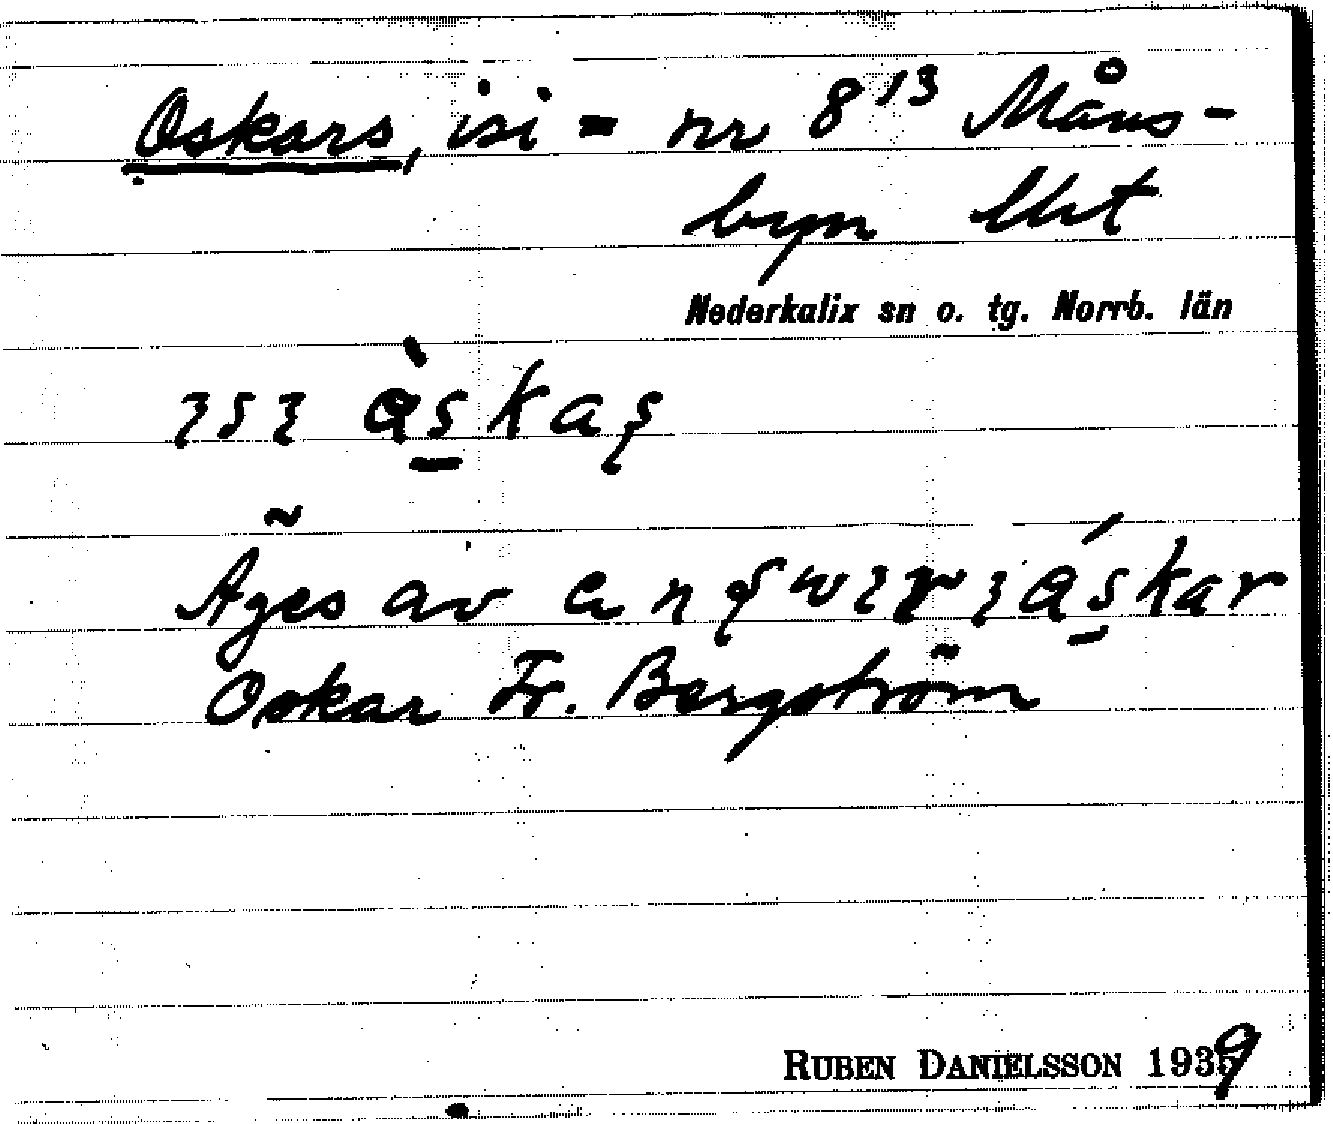 Oskars, isi = nr 8¹³ Måns-
byn Uht
Nederkalix sn o. tg. Norrb. län
ɩsɩ àskaş
Äges av
Oskar Fr. Bergström
RUBEN DANIELSSON 1939